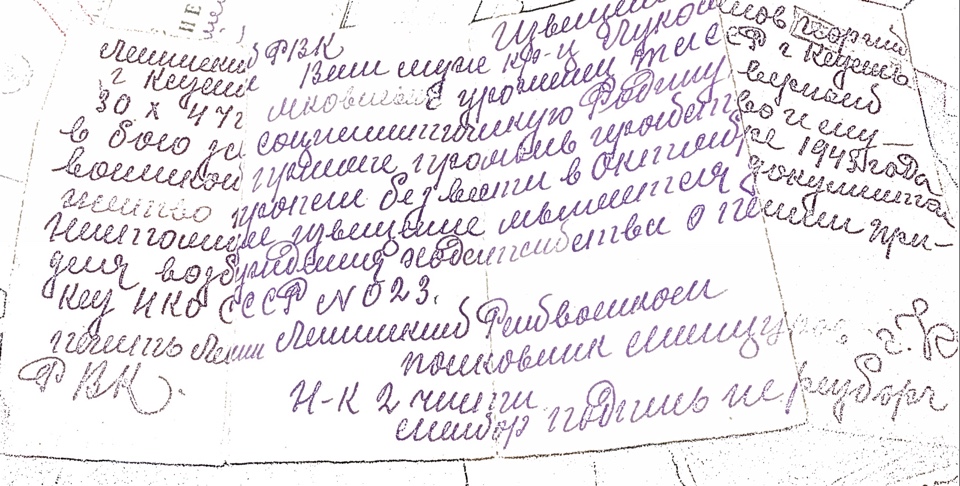 Извещение
Ленинский РВК Ваш муж кр-ц Чуко Георгий
г Казань уроженец ТАССР г Казань
30 X 47г
в бою за социалистическую Родину верный
воинской присяге проявив геройство и му-
жество пропал без вести в Октябре 1943 года
Настоящее извещение является документом
для возбуждения ходатайства о пенсии при-
каз НКО СССР N 023.
печать Ленин Ленинский Райвоенком
РВК. полковник
Н-К 2 части
майор подпись не разборч